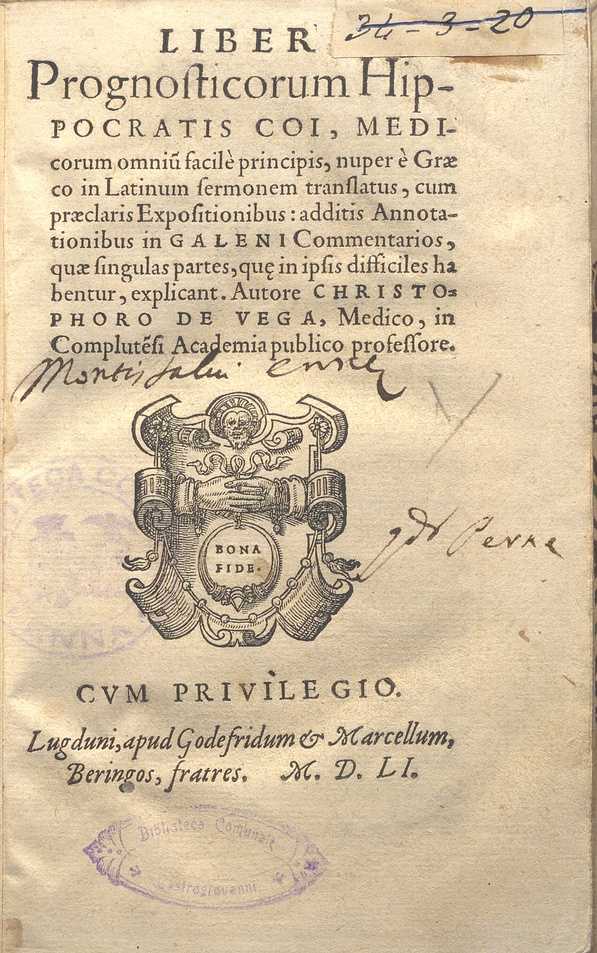 34-3-20
LIBER
Prognoſticorum Hip-
POCRATIS COI, MEDI-
corum omniũ facilè principis, nuper è Græ
co in Latinum ſermonem tranſlatus, cum
præclaris Expoſitionibus: additis Annota-
tionibus in GALENI Commentarios,
quæ ſingulas partes, quę in ipſis difficiles ha
bentur, explicant. Autore CHRISTO-
PHORO DE VEGA, Medico, in
Complutẽſi Academia publico profeſſore.
Montis
BONA
FIDE.
CVM PRIVILEGIO.
Lugduni, apud Godefridum & Marcellum,
Beringos, fratres. M. D. LI.
Biblioteca Comunale
Castrogiovanni